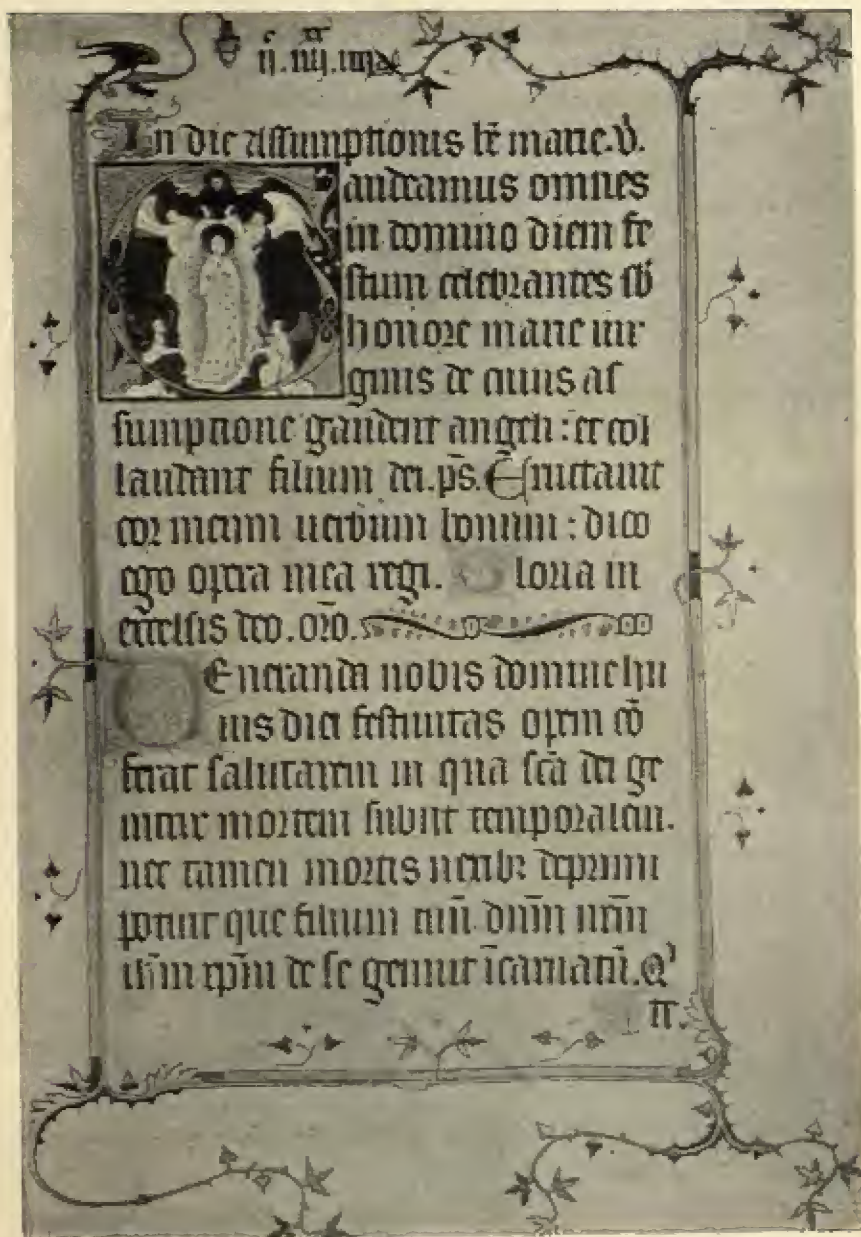 ij.iiij.
In die assumptionis bte marie.
Gaudeamus omnes
in domino diem fe
stum celebrantes sb
honore marie uir
ginis de cuius as
sumptione gaudent angeli: et col
laudant filium dei. ps. Eructauit
cor meum uerbum bonum: dico
ego opera mea regi. Gloria in
excelsis deo. oro.
Veneranda nobis domine hu
ius diei festiuitas opem cō
ferat salutarem in qua scā dei ge
nitrix mortem subiit temporalem.
nec tamen mortis nexib; deprimi
potuit que filium tuū dnm nrm
ihm xpm de se genuit īcarnatū. Q